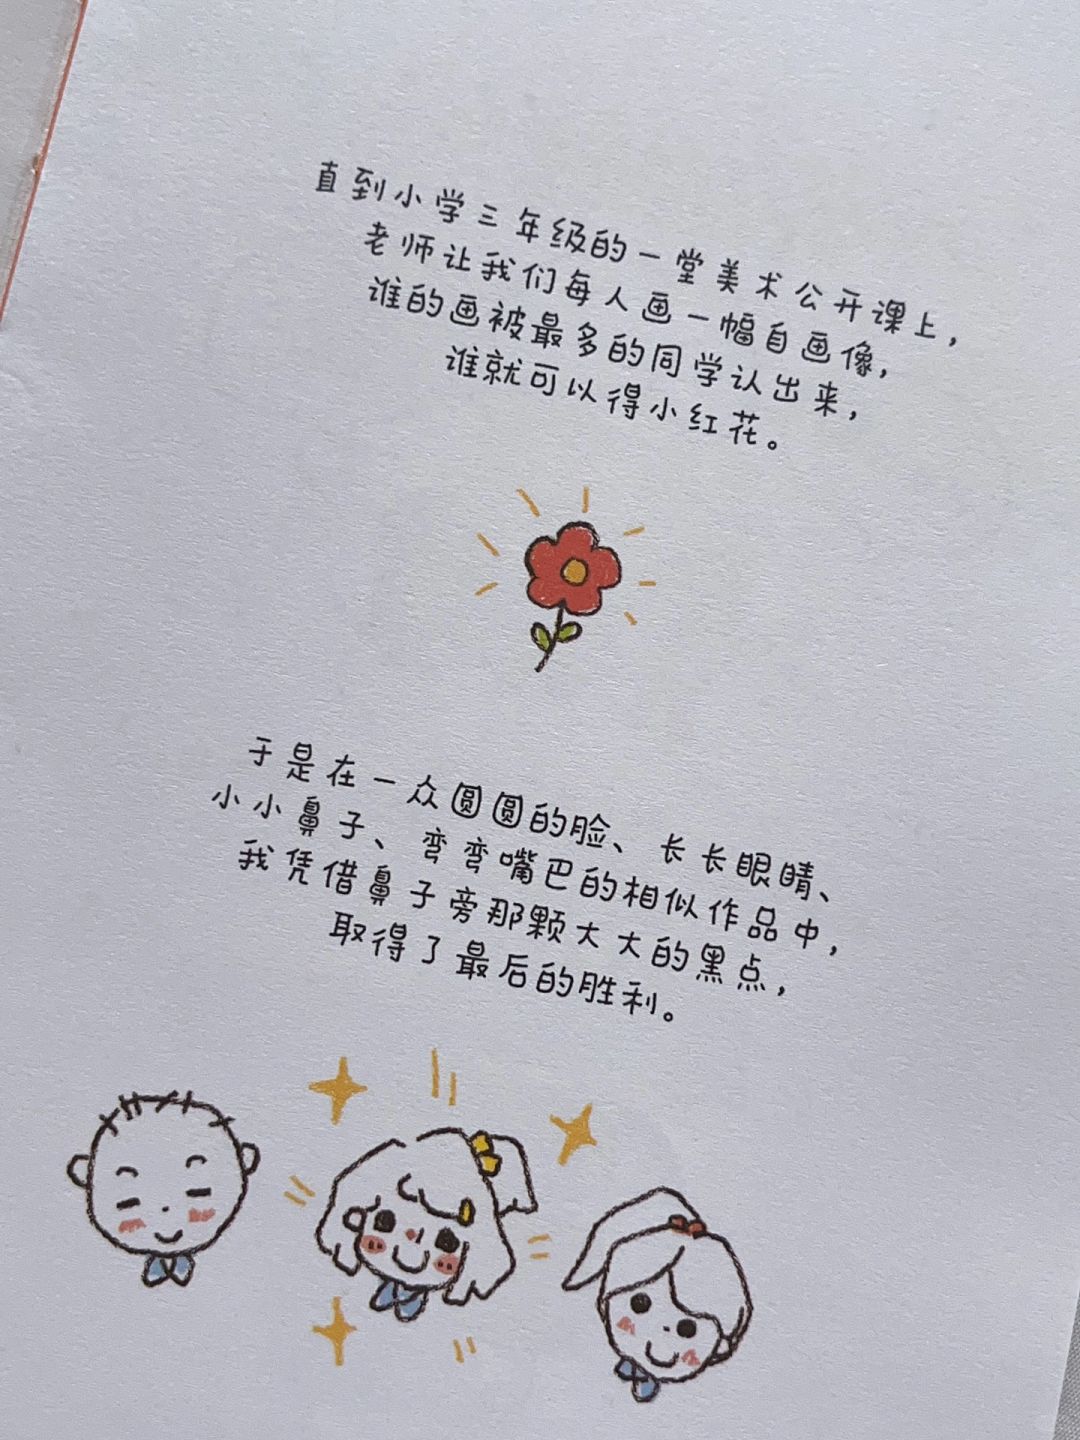 直到小学三年级的一堂美术公开课上，
老师让我们每人画一幅自画像，
谁的画被最多的同学认出来，
谁就可以得小红花。
于是在一众圆圆的脸、长长眼睛、
小小鼻子、弯弯嘴巴的相似作品中，
我凭借鼻子旁那颗大大的黑点，
取得了最后的胜利。